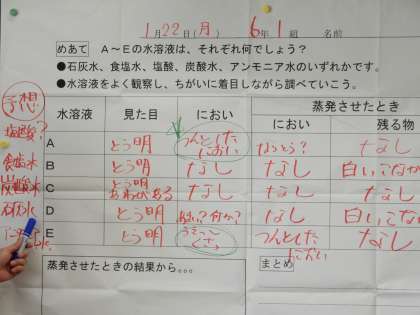 1月22日(月) 6年1組 名前
めあて A〜Eの水溶液は、それぞれ何でしょう?
●石灰水、食塩水、塩酸、炭酸水、アンモニア水のいずれかです。
●水溶液をよく観察し、ちがいに着目しながら調べていこう。
予想
水溶液 見た目 におい 蒸発させたとき
におい 残る物
塩酸? A とう明 つんとした におい なし
食塩水 B とう明 なし なし 白いこな
炭酸水 C とう明 あわがある なし なし なし
石灰水 D とう明 なし 白いこな
E とう明 つんとした におい なし
蒸発させたときの結果から。。。
まとめ